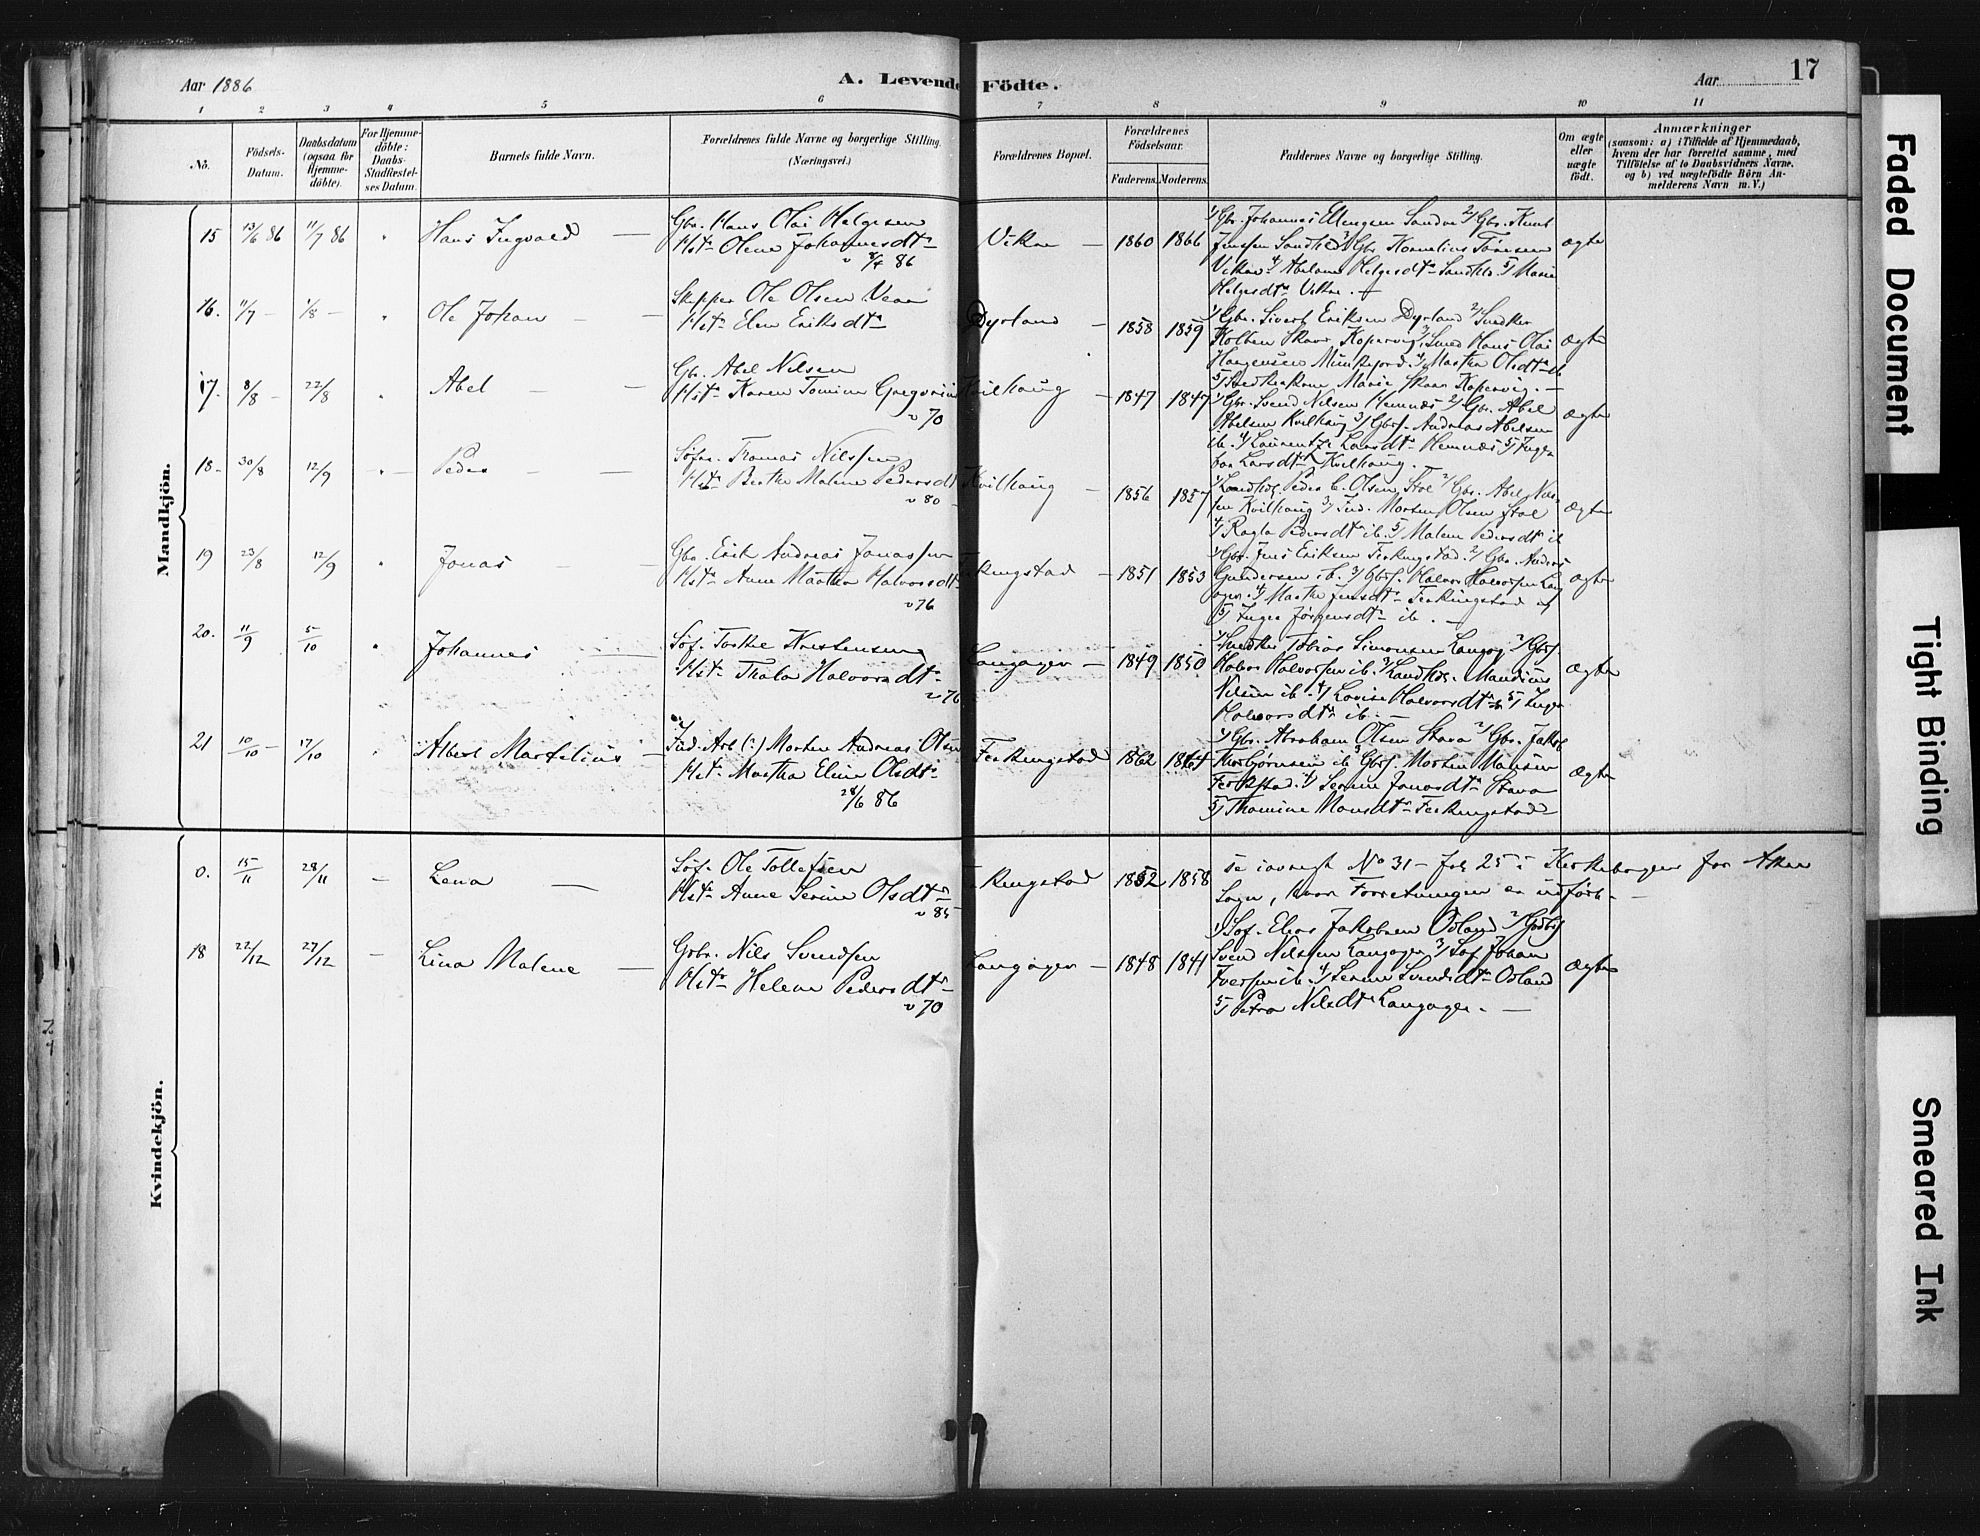 Aar 1886
A. Levende Födte.
Aar
17
1 2 3 4 5 6 7 8 9 10 11
No.
Födsels-Datum.
Daabsdatum (ogsaa for Hjemme-döbte).
For Hjemme-döbte: Daabs-Stadfæstel-ses Datum.
Barnets fulde Navn.
Forældrenes fulde Navne og borgerlige Stilling.
(Næringsvei.)
Forældrenes Bopæl.
Forældrenes Födselsaar.
Faderens. Moderens.
Faddernes Navne og borgerlige Stilling.
Om ægte eller uægte födt.
Anmærkninger
(saasom: a) i Tilfælde af Hjemmedaab,
hvem der har forrettet samme, med
Tilföielse af to Daabsvidners Navne,
og b) ved uægtefödte Börn An-
melderens Navn m. V.)
Mandkjön.
15 13/6 86 11/7 86 " Hans Ingvald — Gbr. Hans Olai Helgesen
Hst. Olene Johannesdtr
v 8/4 86
Vikre — 1860 1866
1/ Gbr. Johannes Ellengsen Sandve 2/ Gbr. Knut
Jenssen Sandhl 3/ Gbr. Kornelius Tøresen
Vikre 4/ Abelone Helgesdtr Sandhl. 5/ Marie
Helgesdtr Vikre. —
ægte
16. 11/7 — 1/8 — " Ole Johan — Skipper Ole Olsen Vear
Hst. Elen Eriksdtr
Dyrland — 1858 1859
1/ Gbr. Sivert Eriksen Dyrland 2/ Snedker
Kolben Skaar Kopervig, 3/ Smed Hans Olai
4/ Martha Olsdtr
5/ Marie Skaar Kopervig. —
ægte
17. 8/8 — 22/8 " Abel — Gb. Abel Nilsen
Hst. Karen Tomine
v 70
Kvilhaug — 1847 1847
1/ Gbr. Svend Nilsen Hemnæs 2/ Gbr. Abel
Abelsen Kvilhaug 3/ Gbrs. Andreas Abelsen
ib. 4/ Laurentze Larsdtr Hemnæs 5/ Inge
bor Larsdtr Kvilhaug.
ægte
18. 30/8 12/9 " Peder — Søfar. Tomas Nilssen
Hst. Berthe Malene Pedersdt
v 80
Kvilhaug — 1856 1857
1/ Landhdl. Peder C. Olsen Stol 2/ Gbr. Abel Nil-
sen Kvilhaug 3/ Ind. Morten Olsen Stol
4/ Ragla Pedersdtr ib. 5/ Malene Pedersdtr ib
ægte
19 23/8 12/9 " Jonas — Gbr. Erik Andreas Jonassen
Hst. Anne Martha Halvorsdtr
v 76
kingstad — 1851 1853
1/ Gbr. Jens Eriksen Ferkingstad. 2/ Gbr. Anders
Gundersen ib. 3/ Gbrs. Halvor Halvorsen Lang
4/ Marthe Jensdtr Ferkingstad og
5/ Inger Jørgensdtr ib. —
ægte
20. 11/9 5/10 " Johannes — Søf. Tosten Kristensen
Hst. Thala Halvorsdtr
v 76
Langager — 1849 1850
1/ Snedker Tobias Simonsen Langag. 2/ Gbrs.
Halvor Halvorsen ib. 3/ Landhdl. Mandius
Nilsen ib. 4/ Lovise Halvorsdtr ib 5/ Inger
Halvorsdtr ib. —
ægte
21 10/10 — 17/10 " Albert Martelius — Ind. Arb (:) Morten Andreas Olsen
Hst. Martha Eline Olsdtr
28/6 86
Ferkingstad 1862 1864
1/ Gbr. Abraham Olsen Stava 2/ Gbr. Jakob
Thorbjørnsen ib 3/ Gbrs. Morten Monsen
Ferkstad. 4/ Serine Jonasdtr Stava
5/ Thomine Monsdtr Ferkingstad
ægte
Kvindekjön.
0. 15/11 28/11 — Lena — Søf. Ole Tollefsen
Hst. Anne Serine Olsdtr
v 85
kingstad — 1852 1858
se iøvrigt No 31 — Fol 25 i Kirkebogen for
Sogn, hvor Forretningen er udført. —
18 22/12 27/12 — Lina Malene — Gbr. Nils Svendsen
Hst. Helene Pedersdtr
v 70
Langager — 1848 1841
1/ Søf. Elias Jakobsen Odland 2/
Svend Nilssen Langager 3/ Søf. Johan
Iversen ib. 4/ Serine Svendsdtr Odland
5/ Petra Nilsdtr Langager. —
ægte
Faded Document
Tight Binding
Smeared Ink